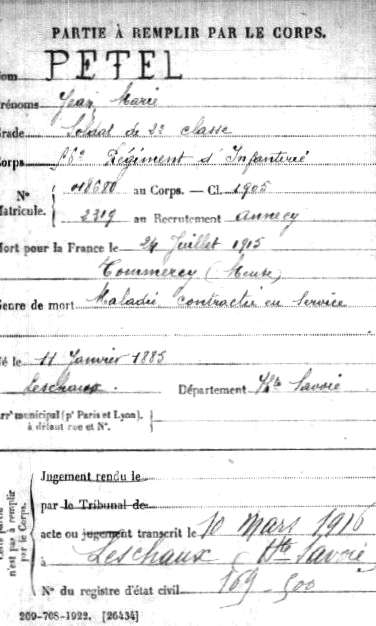 PARTIE À REMPLIR PAR LE CORPS.
Nom PETEL
Prénoms Jean Marie
Grade Soldat de 2e classe
Corps 56e Régiment d'Infanterie
N° 018680 au Corps. — Cl. 1905
Matricule. 2319 au Recrutement Annecy
Mort pour la France le 24 Juillet 1915
Commercy (Meuse)
Genre de mort Maladie contractée en service
Né le 11 Janvier 1885
Leschaux. Département Hte Savoie
Arrt municipal (pr Paris et Lyon),
à défaut rue et N°.
n'est pas à remplir
par le Corps.
Jugement rendu le
par le Tribunal de
acte ou jugement transcrit le 10 Mars 1916
à Leschaux (Hte Savoie)
N° du registre d'état civil 169-500
269-708-1922. [26434]